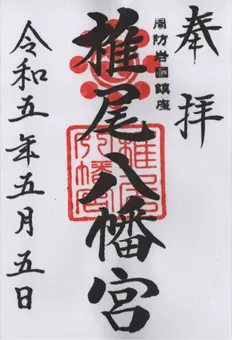 奉拝
周防岩国鎮座
椎尾八幡宮
椎尾八幡宮
令和五年五月五日